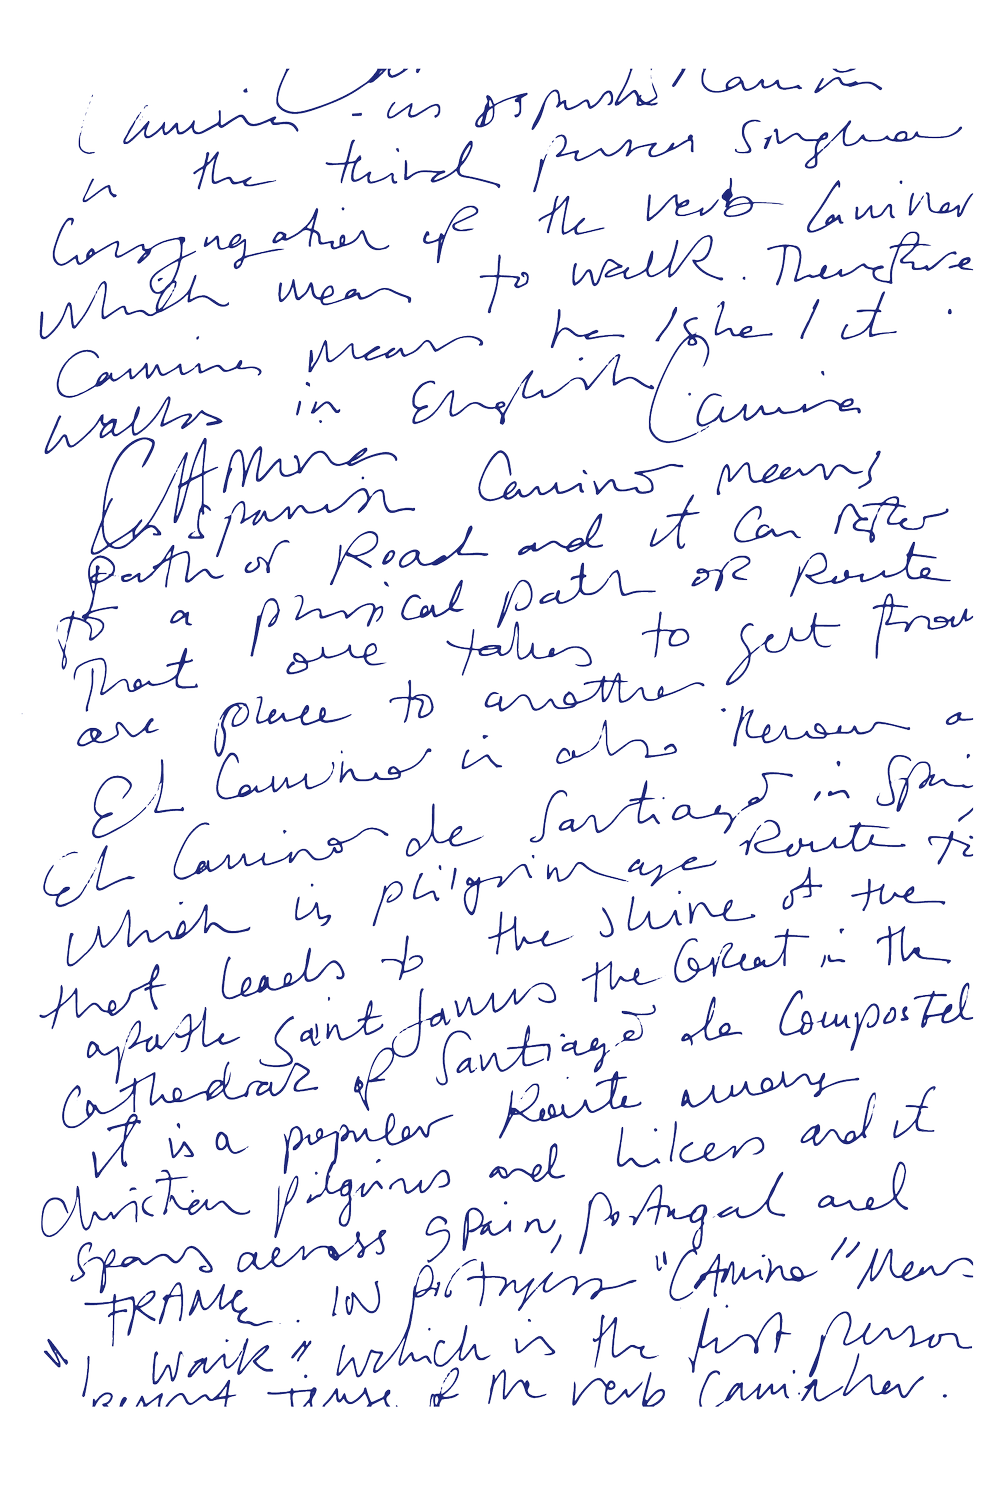 Camina - in Spanish Camina
is the third person Singular
Conjugation of the verb Caminar
Which means to walk. Therefore
Camina means he / she / it
walks in English Camina
CAMINO
In Spanish Camino means
path or Road and it can refer
to a physical path or Route
That one takes to get from
one place to another
EL Camino is also known a
EL Camino de Santiago in Spai
Which is pilgrimage Route
that leads to the shrine of the
apostle Saint James the Great in the
Cathedral of Santiago de Compostel
it is a popular Route among
Christian pilgrims and hikers and it
spans across Spain, Portugal and
FRANCE. IN Portugese "CAmino" Means
"I walk" which is the first person
present tense of the verb Caminhar.